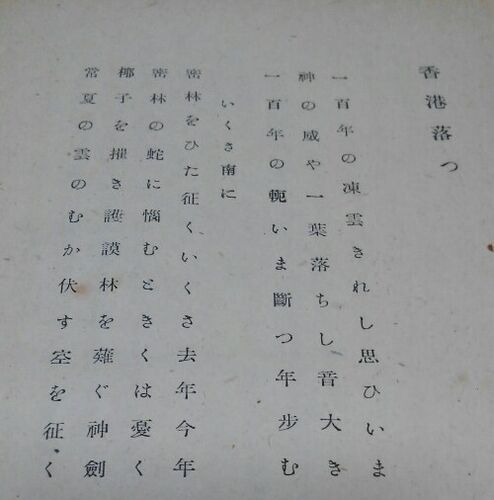 香港落つ
一百年の凍雲きれし思ひいま
神の威や一葉落ちし音大き
一百年の軛いま斷つ年歩む
いくさ南に
密林をひた征くいくさ去年今年
密林の蛇に惱むときくは憂く
椰子を摧き護謨林を薙ぐ神劍
常夏の雲のむか伏す空を征く